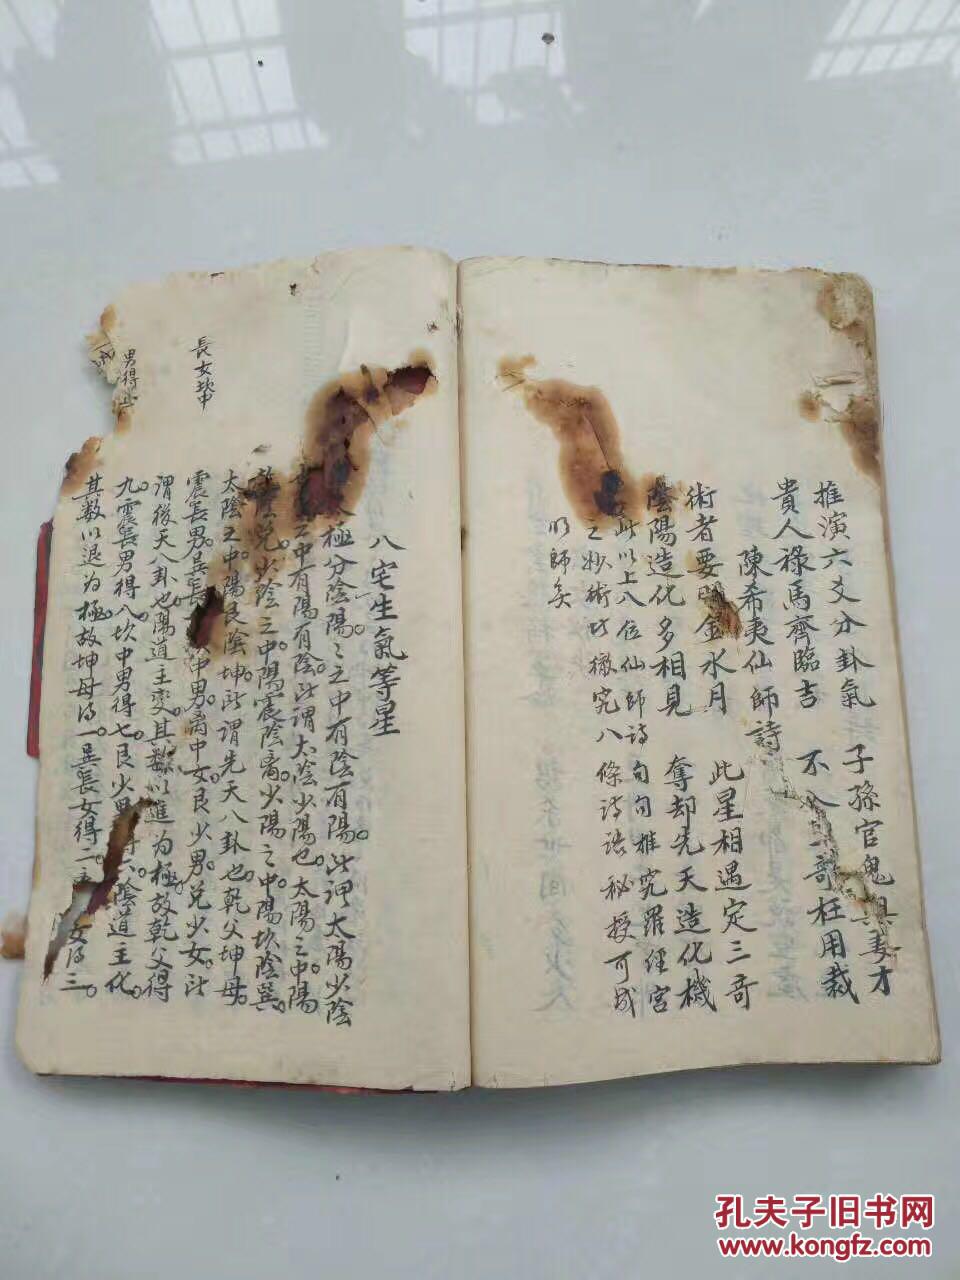 推演六爻分卦氣 子孫官鬼與妻才
貴人祿馬齊臨吉 不合 歌枉用裁
陳希夷仙師詩
術者要明金水月 此星相遇定三奇
陰陽造化多相見 奪却先天造化機
此以上八位仙師詩句句推究羅經宮
之妙術 徹究八條詩語秘授可成
明師矣
八宅生氣等星
太極分陰陽。之中有陰有陽。此謂太陽少陰
之中有陽有陰。此謂太陰少陽也。太陽之中陽
乾陰兌。少陰之中陽震陰離。少陽之中陽坎陰巽。
太陰之中陽艮陰坤。所謂先天八卦也。乾父坤母。
震長男。巽長 中男。离中女。艮少男。兌少女。所
謂後天八卦也。陽道主变。其数以進為極。故乾父得
九。震長男得八。坎中男得七。艮少男得六。陰道主化。
其数以退為極。故坤母得一。巽長女得二 女得三。
長女
男得
孔夫子旧书网
www.kongfz.com